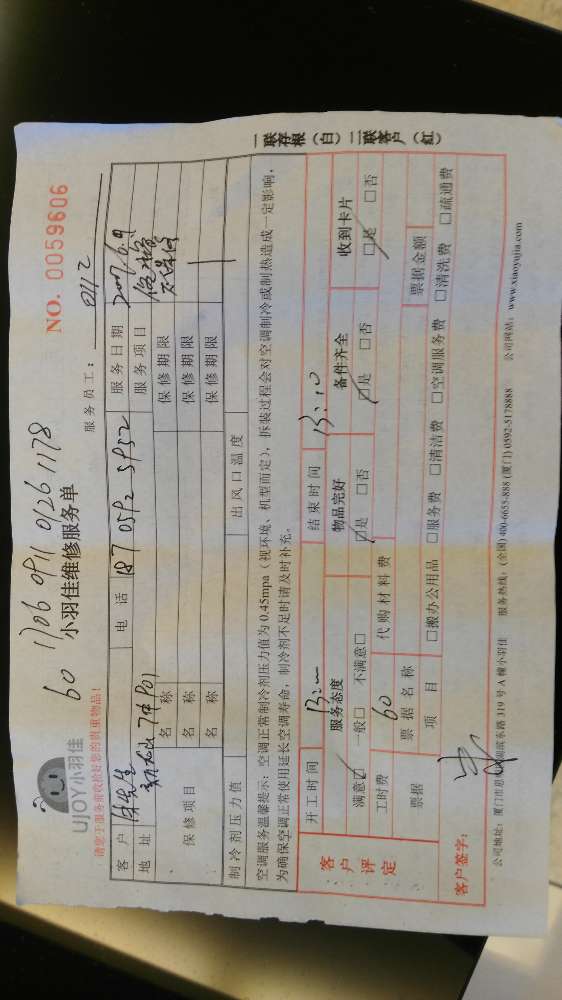 60 1706 0911 0126 1178
UJOY小羽佳
小羽佳维修服务单
NO. 0059606
请您于服务前收拾好您的贵重物品!
服务员工: 0112
客户 先生 电话 187 0592 5952 服务日期 2017.6.9
地址 服务项目
保修项目 名称 保修期限
名称 保修期限
名称 保修期限
制冷剂压力值 出风口温度
空调服务温馨提示: 空调正常制冷剂压力值为 0.45mpa (视环境、机型而定), 拆装过程会对空调制冷或制热造成一定影响,
为确保空调正常使用延长空调寿命, 制冷剂不足时请及时补充。
客户评定
开工时间 结束时间 13:10
服务态度 物品完好 备件齐全 收到卡片
满意□ 一般□ 不满意□ □是 □否 □是 □否 □是 □否
工时费 60 代购材料费
票据 票据名称 票据金额
项目 □搬办公用品 □服务费 □清洁费 □空调服务费 □清洗费 □疏通费
客户签字:
公司地址: 厦门市思明区湖滨东路 319 号 A 幢小羽佳 服务热线: (全国) 400-6655-888 (厦门) 0592-5178888 公司网站: www.xiaoyujia.com
一联存根 (白) 二联客户 (红)